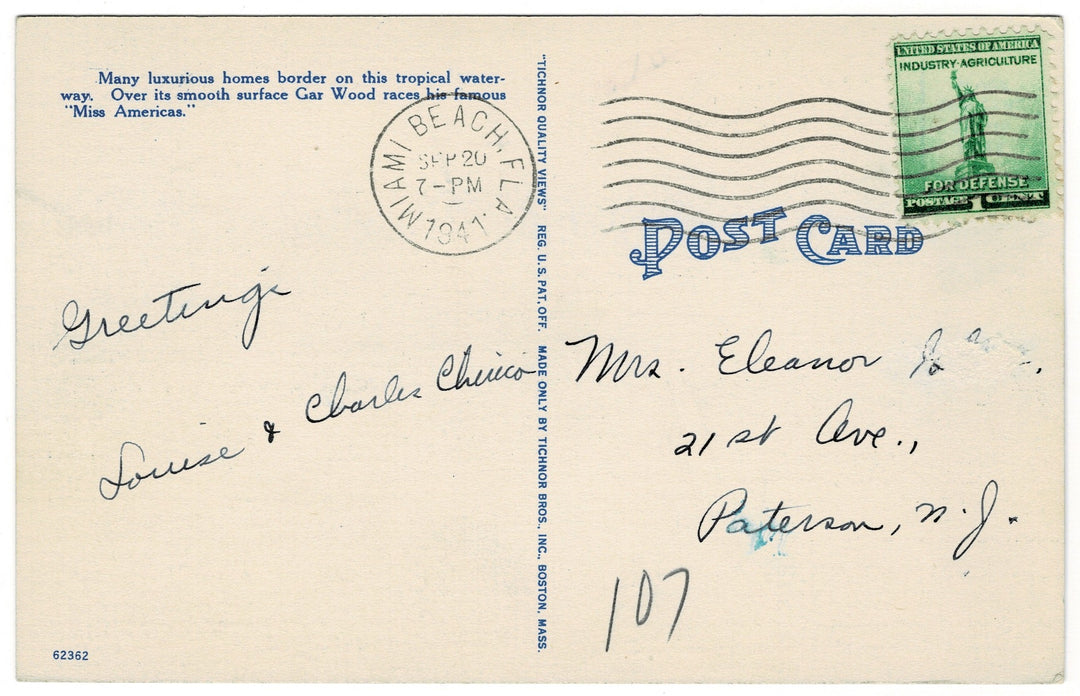 Many luxurious homes border on this tropical water-
way. Over its smooth surface Gar Wood races his famous
"Miss Americas."
MIAMI BEACH, FLA.
SEP 20
7-PM
1941
"TICHNOR QUALITY VIEWS" REG. U.S. PAT. OFF. MADE ONLY BY TICHNOR BROS., INC., BOSTON, MASS.
UNITED STATES OF AMERICA
INDUSTRY·AGRICULTURE
FOR DEFENSE
POSTAGE 1 CENT
POST CARD
Greetings
Louise & Charles Chirico
Mrs. Eleanor
21st Ave.,
Paterson, N.J.
107
62362